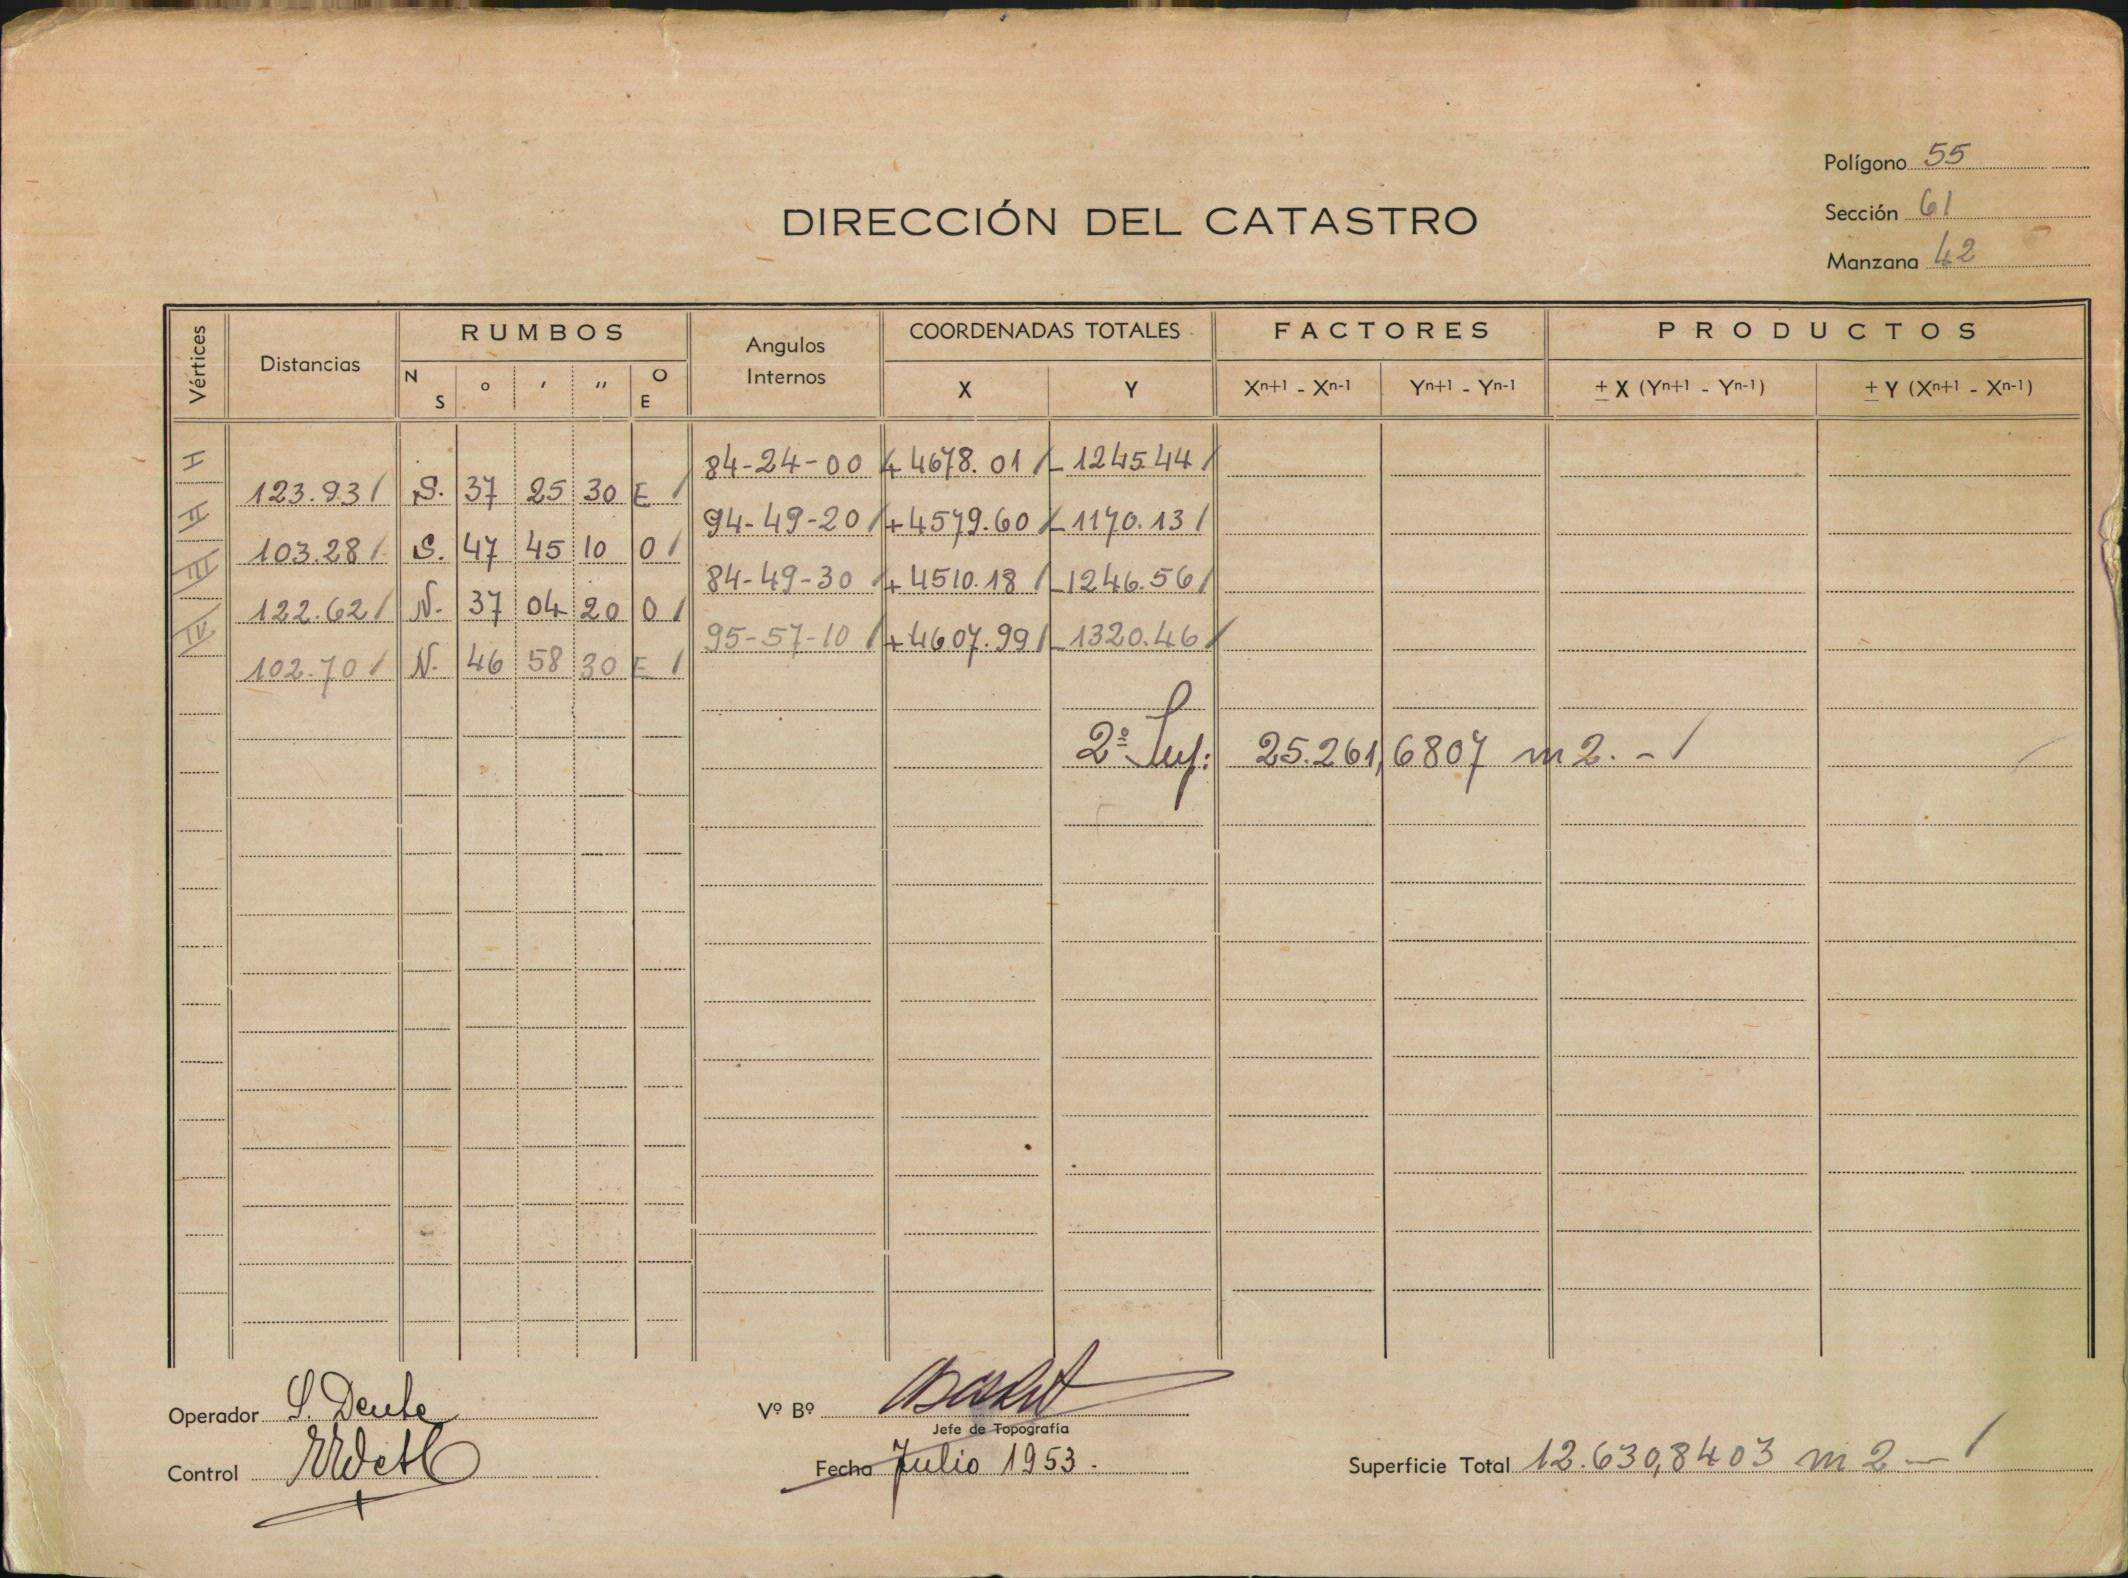 Polígono 55
DIRECCIÓN DEL CATASTRO
Sección 61
Manzana 42
Vértices Distancias RUMBOS Angulos Internos COORDENADAS TOTALES FACTORES PRODUCTOS
N S o ' " O E X Y Xn+1 - Xn-1 Yn+1 - Yn-1 ± X (Yn+1 - Yn-1) ± Y (Xn+1 - Xn-1)
I 84-24-00 + 4678.01 / - 1245.44 /
123.93 / S. 37 25 30 E /
II 94-49-20 / + 4579.60 / - 1170.13 /
103.28 / S. 47 45 10 O /
III 84-49-30 / + 4510.18 / - 1246.56 /
122.62 / N. 37 04 20 O /
IV 95-57-10 / + 4607.99 / - 1320.46 /
102.70 / N. 46 58 30 E /
2º Sup: 25.261,6807 m2. - /
Operador S. Deule
Vº Bº
Jefe de Topografía
Control
Fecha Julio 1953.
Superficie Total 12.630,8403 m2 - /